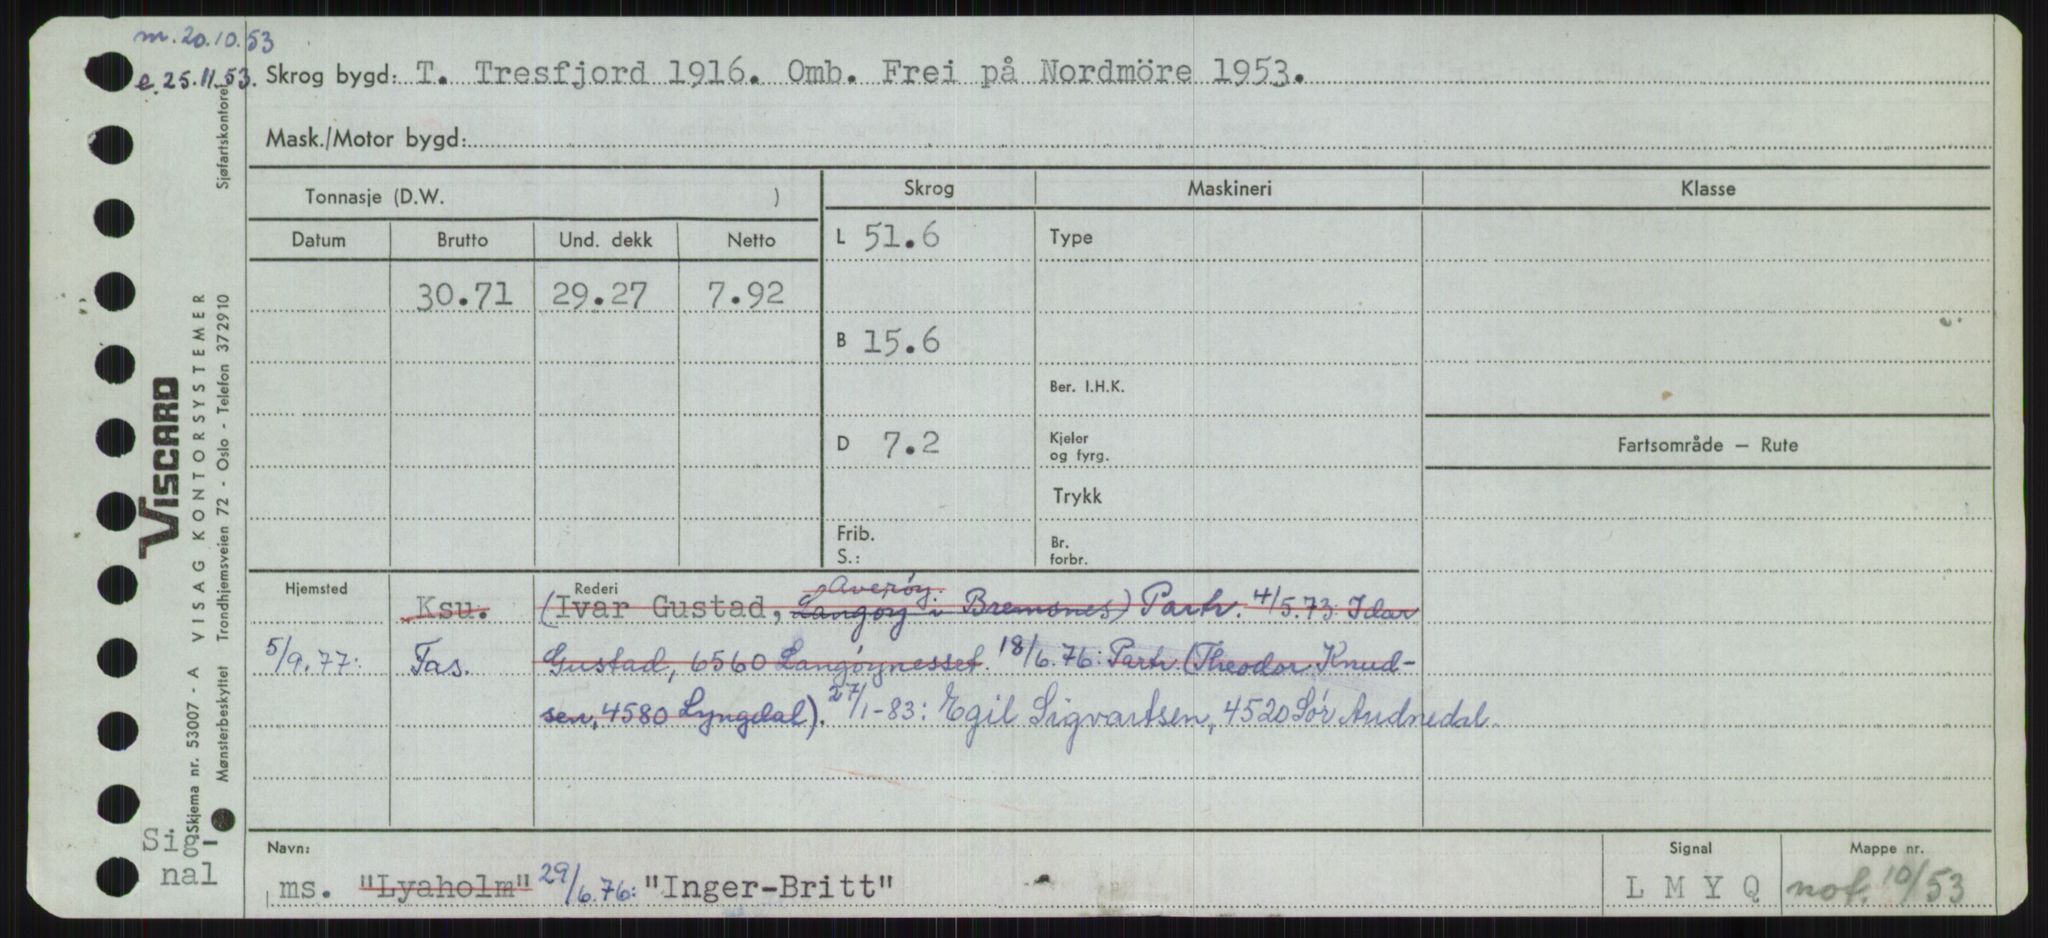 m. 20.10.53
e. 25.11.53.
Skrog bygd: T. Tresfjord 1916. Omb. Frei på Nordmöre 1953.
Mask./Motor bygd:
Tonnasje (D.W. )
Skrog
Maskineri
Klasse
Datum Brutto Und. dekk Netto
L 51.6
Type
30.71 29.27 7.92
B 15.6
Ber. I.H.K.
D 7.2
Kjeler
og fyrg.
Fartsområde — Rute
Trykk
Frib.
S.:
Br.
forbr.
Hjemsted
Rederi
Averöy.
Ksu. (Ivar Gustad, Langöy i Bremsnes) Partr. 4/5.73: Idar
5/9.77: Fas. Gustad, 6560 Langöynesset. 18/6.76: Partr. (Theodor Knud-
sen, 4580 Lyngdal). 27/1-83: Egil Sigvartsen, 4520 Sör Audnedal.
Navn:
Signal
Mappe nr.
ms. "Lyaholm" 29/6.76: "Inger-Britt"
L M Y Q
not. 10/53
Sig-
nal
VISCARD
Skjema nr. 53007 - A VISAG KONTORSYSTEMER
Mønsterbeskyttet Trondhjemsveien 72 - Oslo - Telefon 372910
Sjøfartskontoret